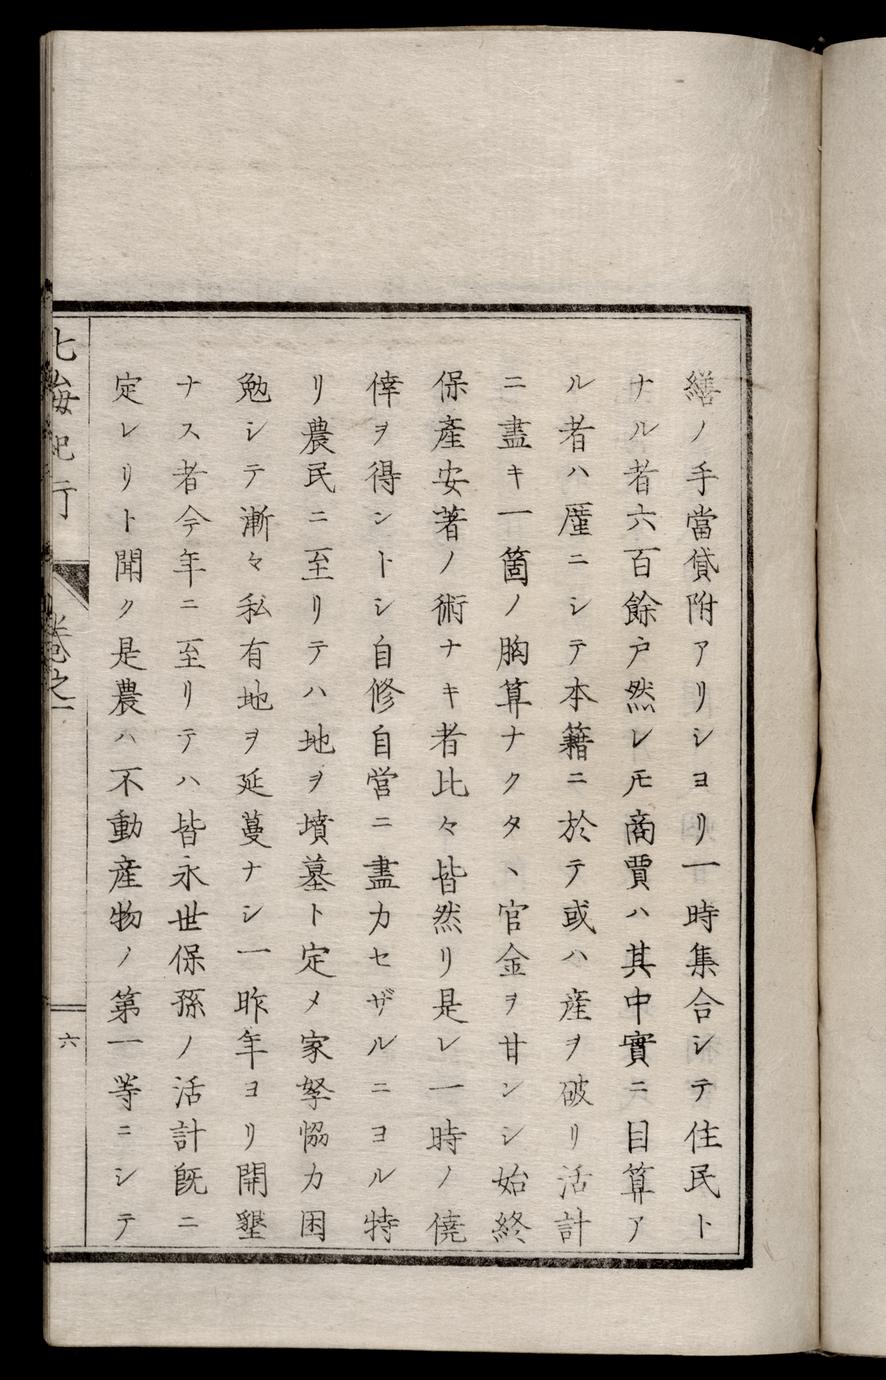 繕ノ手當貸附アリシヨリ一時集合シテ住民ト
ナル者六百餘戸然レ𪜈商賈ハ其中實ニ目算ア
ル者ハ厪ニシテ本籍ニ於テ或ハ産ヲ破リ活計
ニ盡キ一箇ノ胸算ナクタヽ官金ヲ甘ンシ始終
保產安著ノ術ナキ者比々皆然リ是レ一時ノ僥
倖ヲ得ントシ自修自営ニ盡力セザルニヨル特
リ農民ニ至リテハ地ヲ墳墓ト定メ家孥恊力困
勉シテ漸々私有地ヲ延蔓ナシ一昨年ヨリ開墾
ナス者今年ニ至リテハ皆永世保孫ノ活計旣ニ
定レリト聞ク是農ハ不動産物ノ第一等ニシテ
北海紀行 卷之一 六